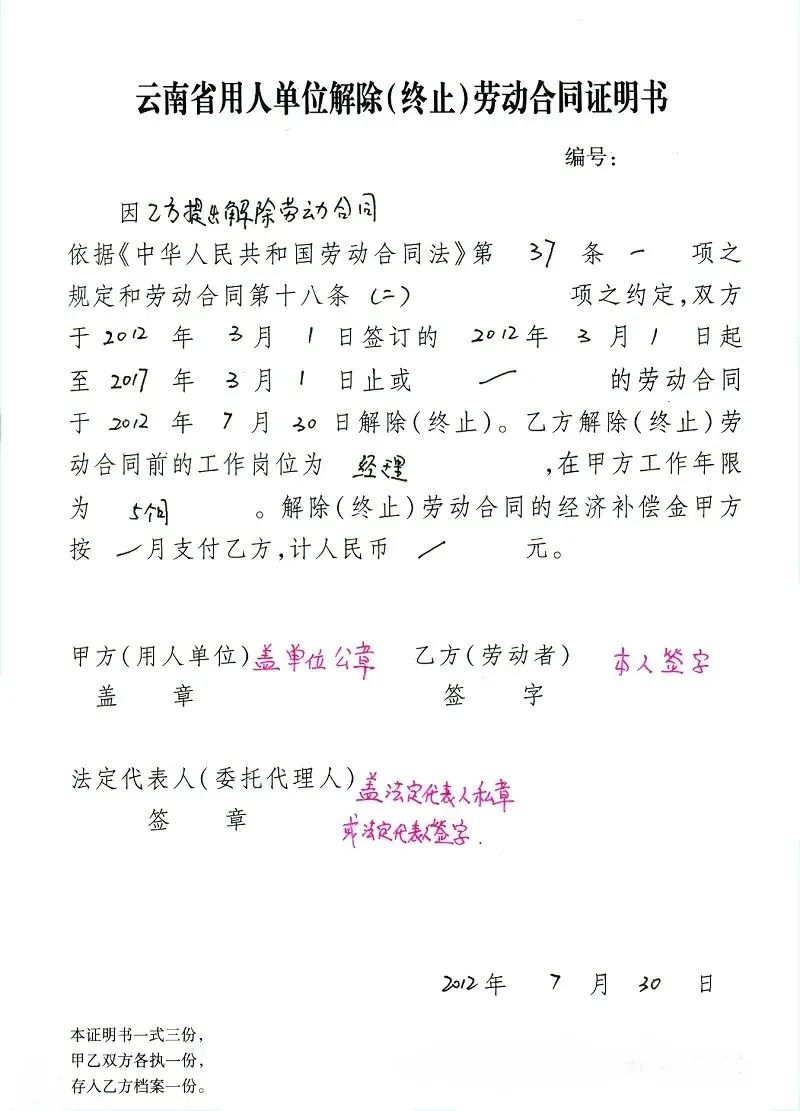 云南省用人单位解除(终止)劳动合同证明书
编号:
因乙方提出解除劳动合同
依据《中华人民共和国劳动合同法》第 37 条 一 项之
规定和劳动合同第十八条 (二) 项之约定,双方
于 2012 年 3 月 1 日签订的 2012 年 3 月 1 日起
至 2017 年 3 月 1 日止或 / 的劳动合同
于 2012 年 7 月 30 日解除(终止)。乙方解除(终止)劳
动合同前的工作岗位为 经理 ,在甲方工作年限
为 5个月 。解除(终止)劳动合同的经济补偿金甲方
按 / 月支付乙方,计人民币 / 元。
甲方(用人单位)盖单位公章 乙方(劳动者) 本人签字
盖 章 签 字
法定代表人(委托代理人)盖法定代表人私章
签 章 或法定代表人签字.
2012 年 7 月 30 日
本证明书一式三份,
甲乙双方各执一份,
存入乙方档案一份。